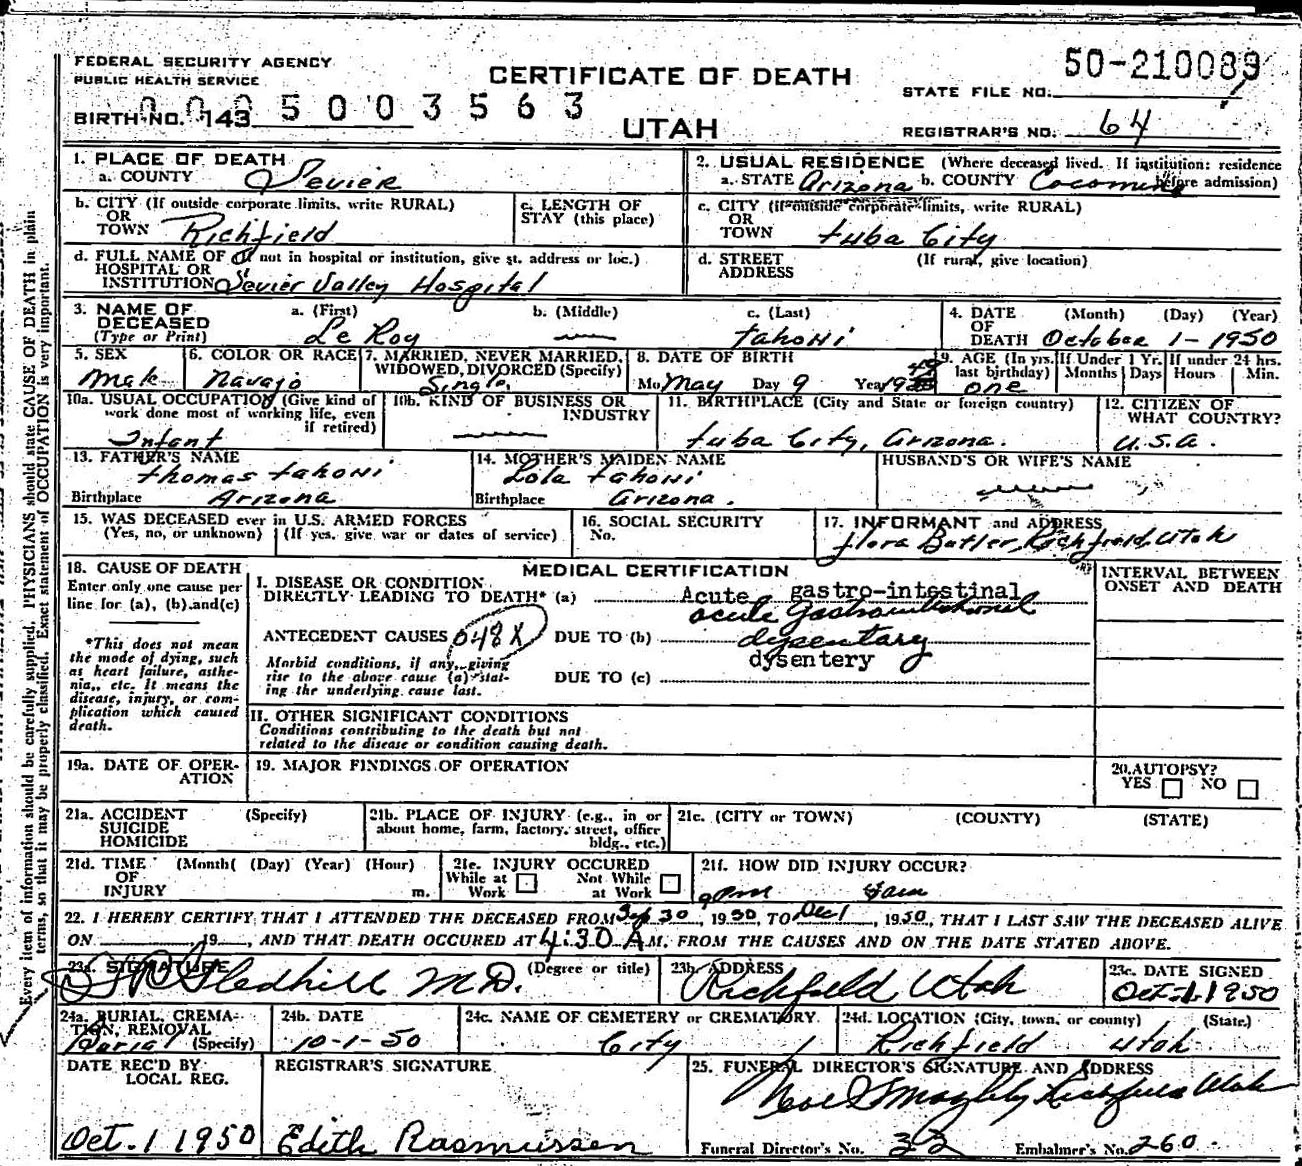 FEDERAL SECURITY AGENCY
PUBLIC HEALTH SERVICE
CERTIFICATE OF DEATH
50-210089
STATE FILE NO.
BIRTH NO. 143 0005003563
UTAH
REGISTRAR'S NO. 64
1. PLACE OF DEATH
a. COUNTY Sevier
2. USUAL RESIDENCE (Where deceased lived. If institution: residence before admission)
a. STATE Arizona b. COUNTY
b. CITY (If outside corporate limits, write RURAL)
OR
TOWN Richfield
c. LENGTH OF
STAY (this place)
c. CITY (if outside corporate limits, write RURAL)
OR
TOWN tuba City
d. FULL NAME OF (If not in hospital or institution, give st. address or loc.)
HOSPITAL OR
INSTITUTION Sevier Valley Hospital
d. STREET
ADDRESS
(If rural, give location)
3. NAME OF
DECEASED
(Type or Print)
a. (First)
Le Roy
b. (Middle)
c. (Last)
tahoni
4. DATE
OF
DEATH
(Month) (Day) (Year)
October 1-1950
5. SEX
Male
6. COLOR OR RACE
Navajo
7. MARRIED, NEVER MARRIED,
WIDOWED, DIVORCED (Specify)
Single
8. DATE OF BIRTH
Mo May Day 9 Year 19
9. AGE (In yrs.
last birthday)
one
If Under 1 Yr.
Months Days
If under 24 hrs.
Hours Min.
10a. USUAL OCCUPATION (Give kind of
work done most of working life, even
if retired)
Infant
10b. KIND OF BUSINESS OR
INDUSTRY
11. BIRTHPLACE (City and State or foreign country)
tuba City, Arizona.
12. CITIZEN OF
WHAT COUNTRY?
U.S.A.
13. FATHER'S NAME
thomas tahoni
Birthplace Arizona
14. MOTHER'S MAIDEN NAME
Lola tahoni
Birthplace Arizona.
HUSBAND'S OR WIFE'S NAME
15. WAS DECEASED ever in U.S. ARMED FORCES
(Yes, no, or unknown) (If yes, give war or dates of service)
16. SOCIAL SECURITY
No.
17. INFORMANT and ADDRESS
Flora Butler, Richfield, Utah
18. CAUSE OF DEATH
Enter only one cause per
line for (a), (b) and (c)
*This does not mean
the mode of dying, such
as heart failure, asthe-
nia, etc. It means the
disease, injury, or com-
plication which caused
death.
MEDICAL CERTIFICATION
I. DISEASE OR CONDITION
DIRECTLY LEADING TO DEATH* (a) Acute gastro-intestinal
acute gastrointestional
ANTECEDENT CAUSES 048X DUE TO (b) dysentary
dysentery
Morbid conditions, if any, giving
rise to the above cause (a) stat-
ing the underlying cause last.
DUE TO (c)
INTERVAL BETWEEN
ONSET AND DEATH
II. OTHER SIGNIFICANT CONDITIONS
Conditions contributing to the death but not
related to the disease or condition causing death.
19a. DATE OF OPER-
ATION
19. MAJOR FINDINGS OF OPERATION
20. AUTOPSY?
YES NO
21a. ACCIDENT
SUICIDE
HOMICIDE
(Specify)
21b. PLACE OF INJURY (e.g., in or
about home, farm, factory, street, office
bldg., etc.)
21c. (CITY or TOWN) (COUNTY) (STATE)
21d. TIME
OF
INJURY
(Month( (Day) (Year) (Hour)
m.
21e. INJURY OCCURED
While at
Work
Not While
at Work
21f. HOW DID INJURY OCCUR?
22. I HEREBY CERTIFY THAT I ATTENDED THE DECEASED FROM Sep 30, 1950, TO Oct 1, 1950, THAT I LAST SAW THE DECEASED ALIVE
ON 19 , AND THAT DEATH OCCURED AT 4:30 A M. FROM THE CAUSES AND ON THE DATE STATED ABOVE.
23a. SIGNATURE Gledhill M.D. (Degree or title)
23b. ADDRESS
Richfield Utah
23c. DATE SIGNED
Oct-1 1950
24a. BURIAL, CREMA-
TION, REMOVAL
Burial (Specify)
24b. DATE
10-1-50
24c. NAME OF CEMETERY or CREMATORY
City
24d. LOCATION (City, town, or county) (State)
Richfield Utah
DATE REC'D BY
LOCAL REG.
Oct. 1 1950
REGISTRAR'S SIGNATURE
Edith Rasmussen
25. FUNERAL DIRECTOR'S SIGNATURE AND ADDRESS
Richfield Utah
Funeral Director's No. 32 Embalmer's No. 260.
Every item of information should be carefully supplied. PHYSICIANS should state CAUSE OF DEATH in plain
terms, so that it may be properly classified. Exact statement of OCCUPATION is very important.